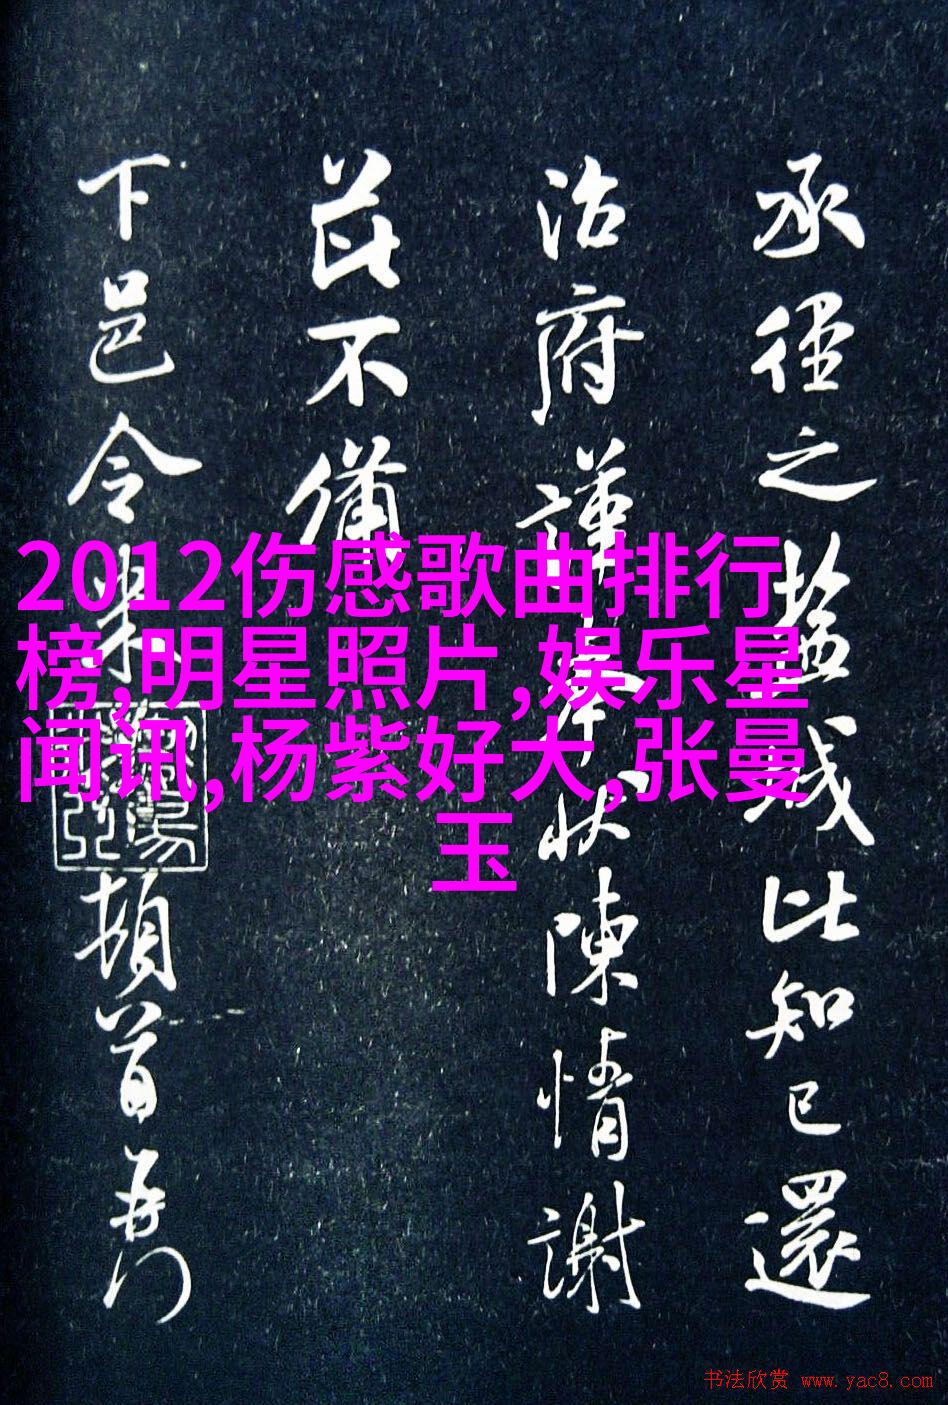 承徑之比知已還
治府謹奉状陳情謝
不備
下邑令頓首
2012伤感歌曲排行
榜,明星照片,娱乐星
闻讯,杨紫好大,张曼
玉
书法欣赏 www.yac8.com